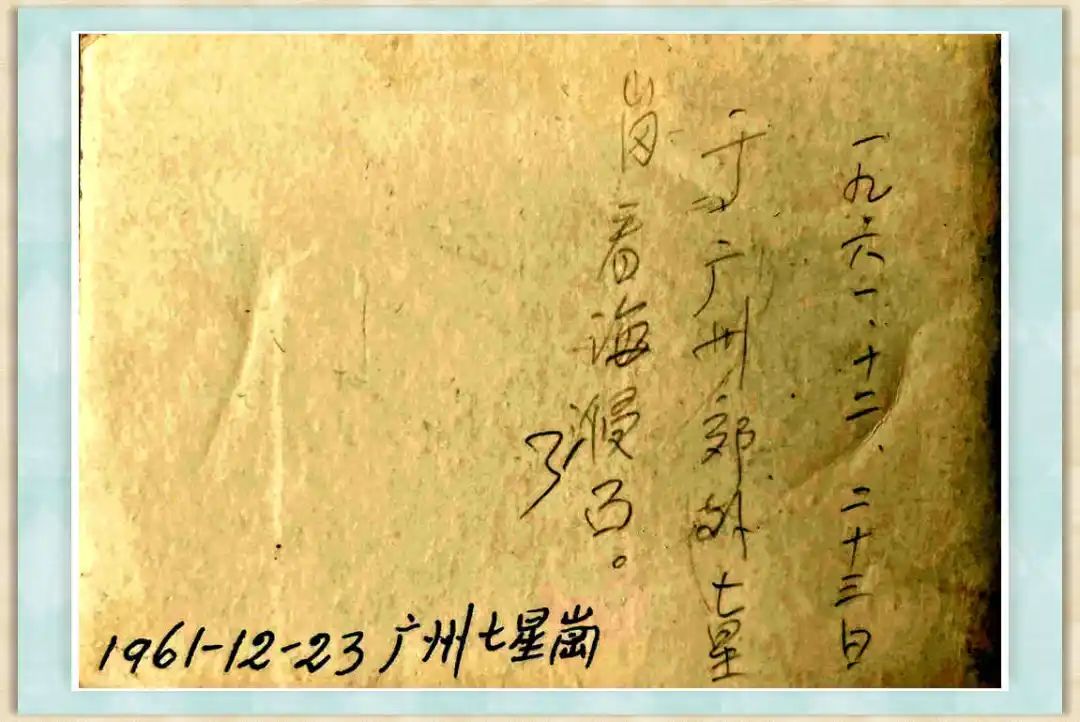 一九六一.十二.二十三日
于广州郊外七星
岗看海浸。
1961-12-23 广州七星崗